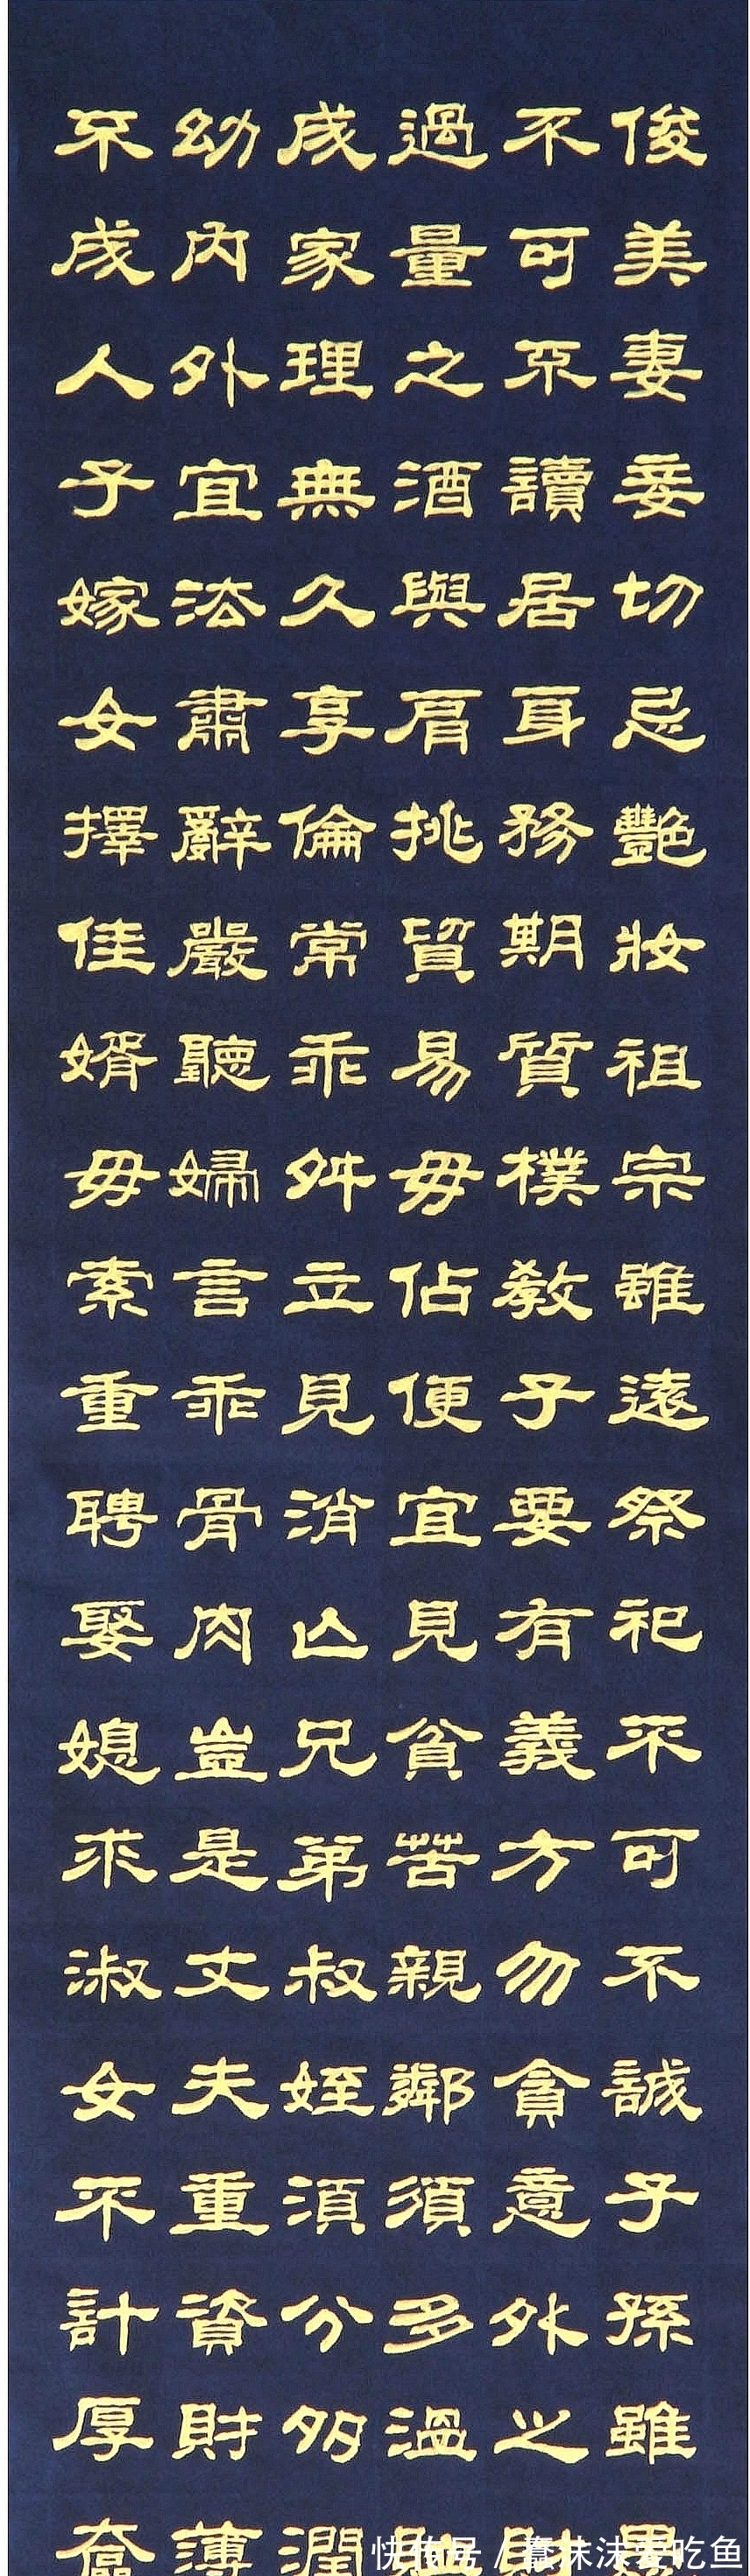 俊美妻妾切忌艷妝祖宗雖遠祭祀不可不誠子孫雖
不可不讀居身務期質樸教子要有義方勿貪意外之
過量之酒與肩挑貿易毋佔便宜見貧苦親鄰須多溫
成家理無久享倫常乖舛立見消亡兄弟叔姪須分多潤
幼內外宜法肅辭嚴聽婦言乖骨肉豈是丈夫重資財薄
不成人子嫁女擇佳婿毋索重聘娶媳求淑女不計厚奩
快传号 / 蠢抹沫爱吃鱼